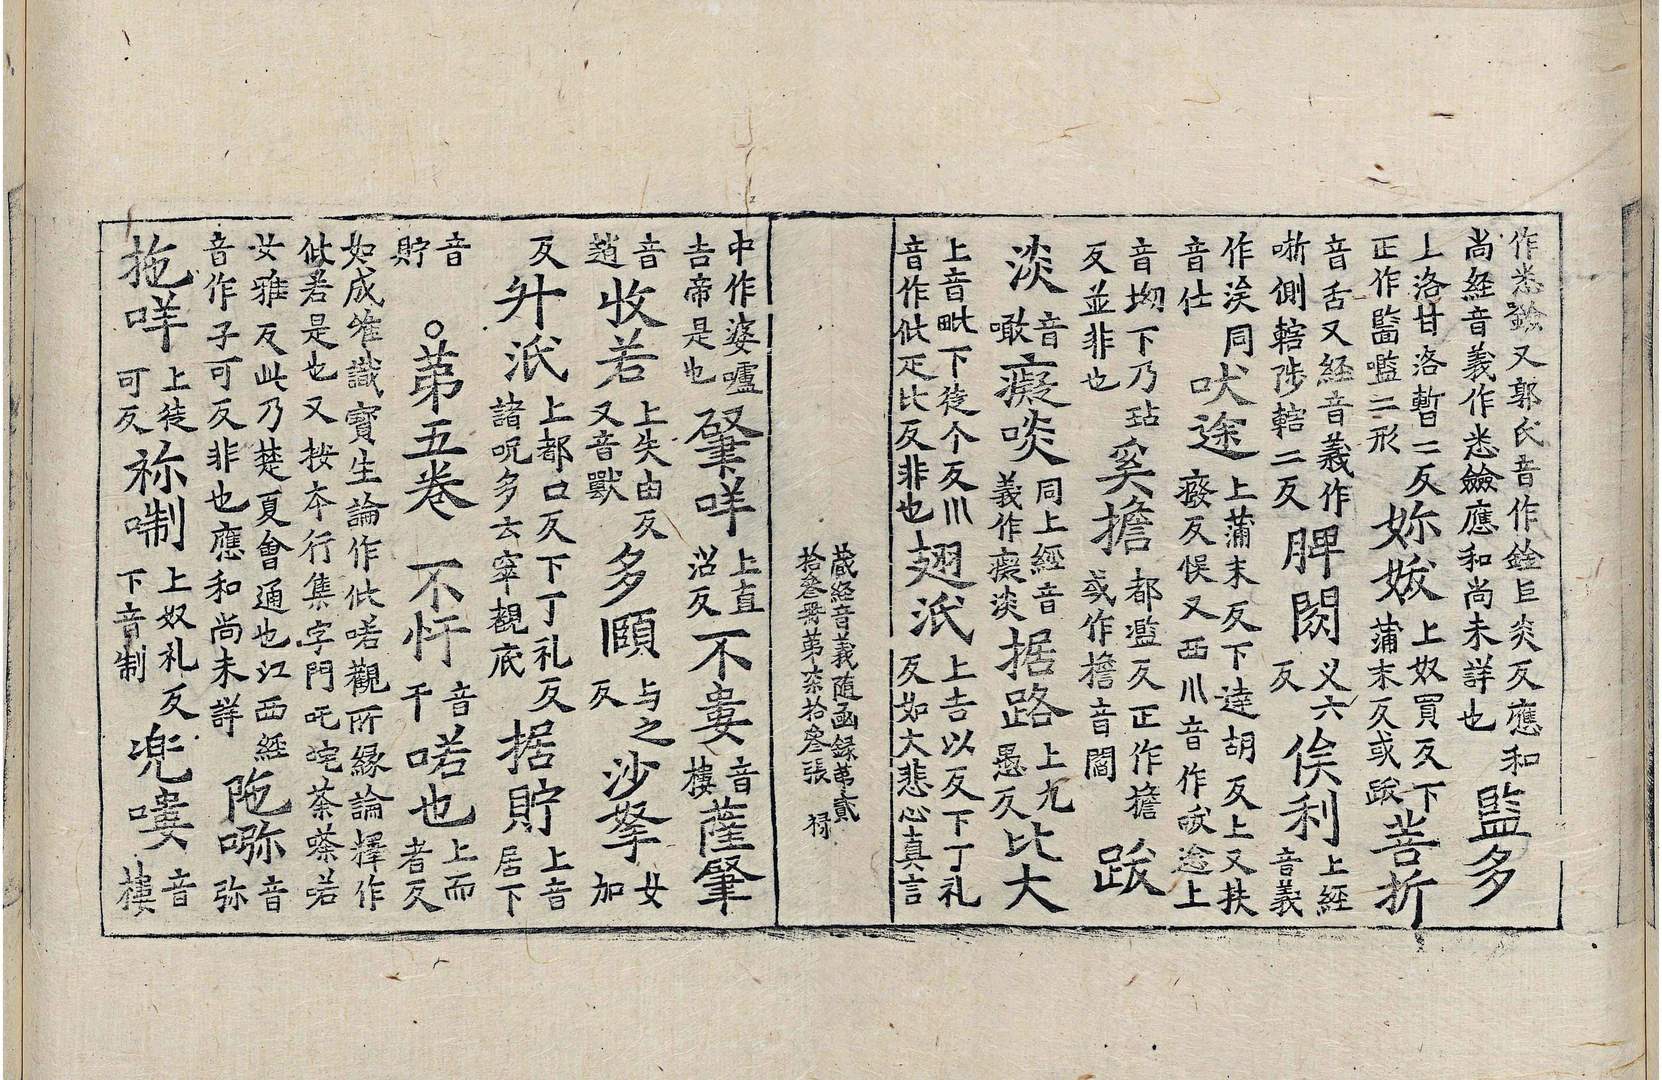 作悉鐱又郭氏音作銓巨炎反應和
尚經音義作悉鐱應和尚未詳也
監多
上洛甘洛暫二反下
正作醫嚂二形
妳妭
上奴買反下
蒲末反或跋
菩折
音舌又經音義作
哳側轄陟轄二反
脾閼
乂六
反
俟利
上經
音義
作涘同
音仕
吠途
上蒲末反下達胡反上又扶
癈反悮又西川音作㕹途上
音坳下乃玷
反並非也
奚擔
都濫反正作擔
或作檐音閻
跋
淡
音
噉
癡啖
同上經音
義作癡淡
据路
上九
愚反
比大
上音毗下徒个反川
音作仳疋比反非也
翅汦
上吉以反下丁礼
反如大悲心真言
藏經音義随函録弟貳
拾叄冊弟柒拾叄張
中作婆嚧
吉帝是也
肈哶
上直
沼反
不婁
音
樓
薩肈
音
趙
收若
上失由反
又音獸
多頤
与之
反
沙拏
女
加
反
升汦
上都口反下丁礼反
諸呪多云宰觀底
据貯
上音
居下
音
貯
○弟五卷
不忓
音
干
喏也
上而
者反
如成唯識寳生論作仳喏觀所縁論擇作
仳若是也又按夲行集字門吒咤荼嗏喏
女雅反此乃楚夏會通也江西經
音作子可反非也應和尚未詳
陁㘈
音
弥
拖哶
上徒
可反
祢㖼
上奴礼反
下音制
兜嘍
音
樓